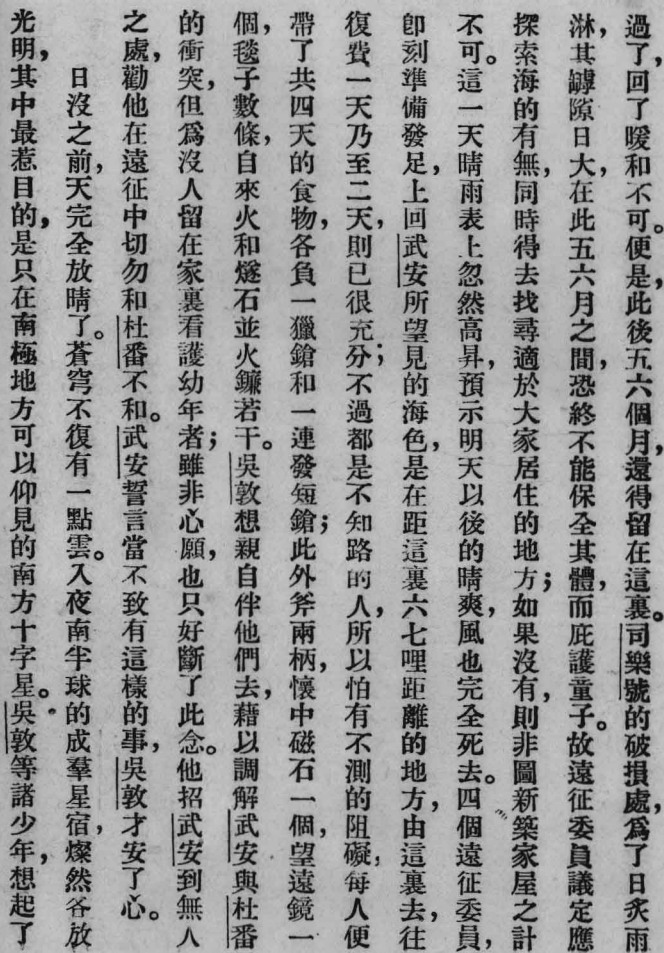 過了，回了暖和不可。便是，此後五六個月，還得留在這裏。司樂號的破損處，爲了日炙雨
淋，其罅隙日大，在此五六月之間，恐終不能保全其體，而庇護童子。故遠征委員議定應
探索海的有無，同時得去找尋適於大家居住的地方；如果沒有，則非圖新築家屋之計
不可。這一天晴雨表上忽然高昇，預示明天以後的晴爽，風也完全死去。四個遠征委員，
卽刻準備發足，上回武安所望見的海色，是在距這裏六七哩距離的地方，由這裏去，往
復費一天乃至二天，則已很充分；不過都是不知路的人，所以怕有不測的阻礙，每人便
帶了共四天的食物，各負一獵鎗和一連發短鎗；此外斧兩柄，懷中磁石一個，望遠鏡一
個，毯子數條，自來火和燧石並火鐮若干。吳敦想親自伴他們去，藉以調解武安與杜番
的衝突，但爲沒人留在家裏看護幼年者；雖非心願，也只好斷了此念。他招武安到無人
之處，勸他在遠征中切勿和杜番不和。武安誓言當不致有這樣的事，吳敦才安了心。
日沒之前，天完全放晴了。蒼穹不復有一點雲。入夜南半球的成羣星宿，燦然各放
光明，其中最惹目的，是只在南極地方可以仰見的南方十字星。吳敦等諸少年，想起了